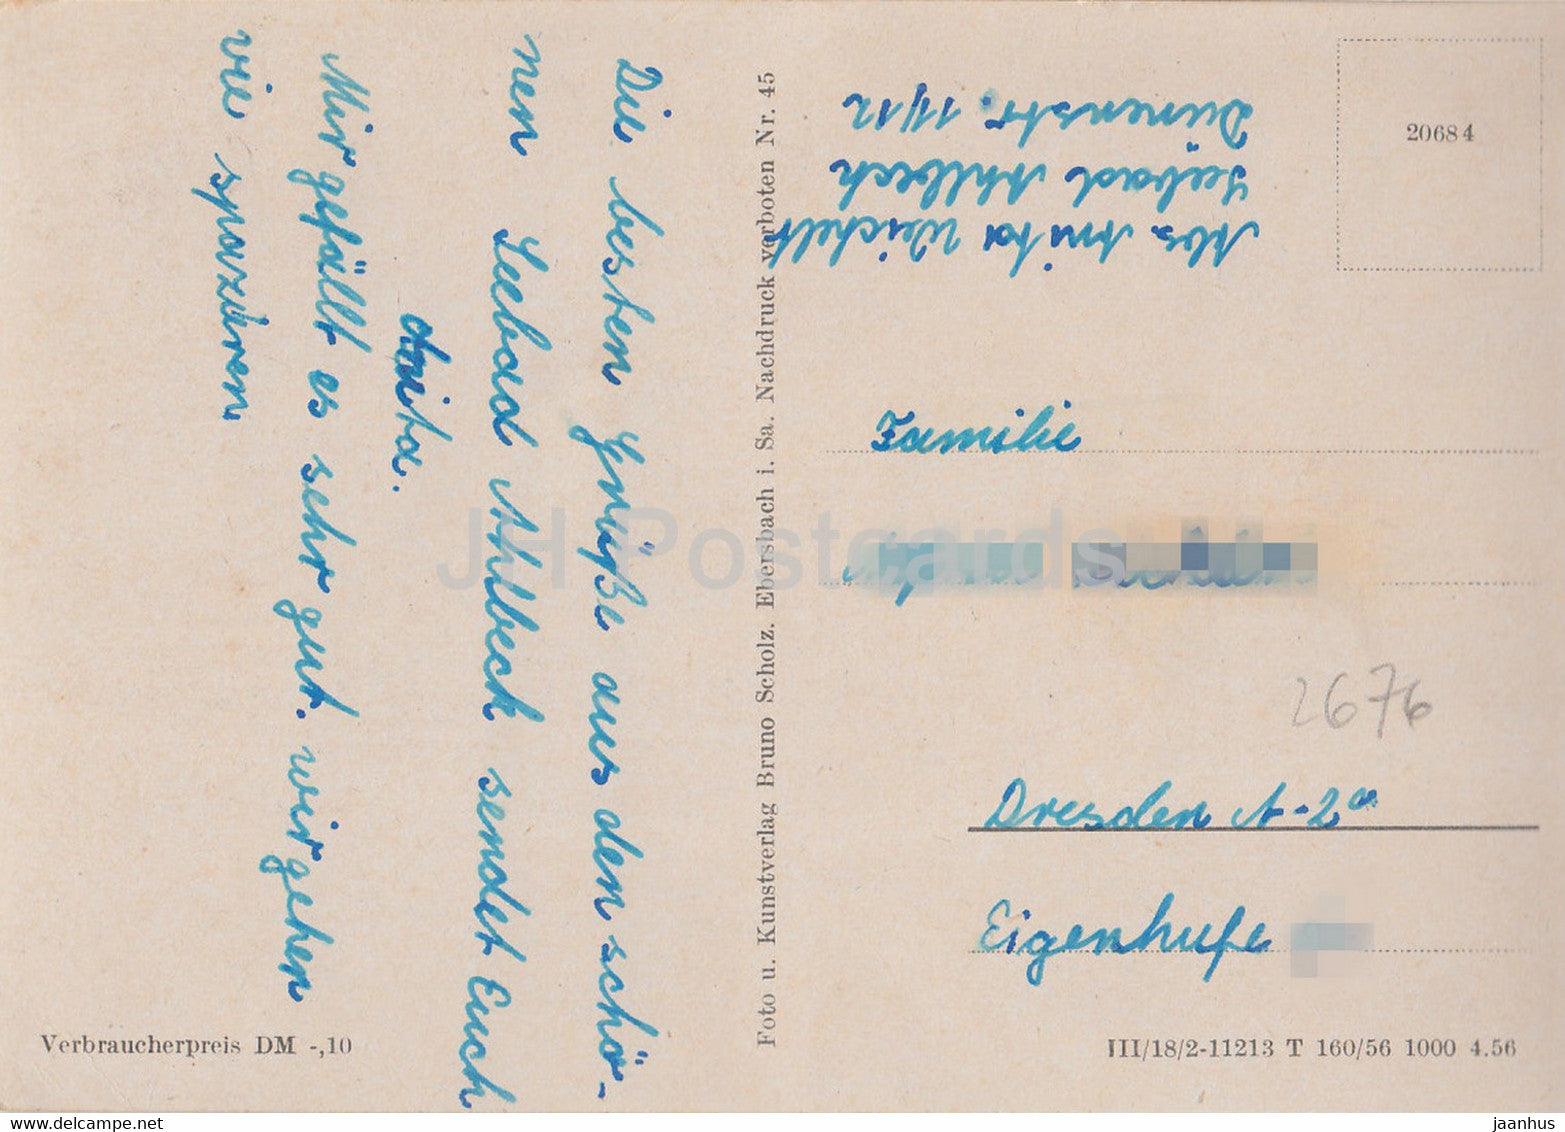 Die besten Grüße aus den schö-
nen Seebad Ahlbeck sendet Euch
Anita.
Mir gefällt es sehr gut. wir gehen
vie spaziren
Foto u. Kunstverlag Bruno Scholz. Ebersbach i. Sa. Nachdruck verboten Nr. 45
Abs. Anita Weichelt
Seebad Ahlbeck
Dünenstr. 11/12
20684
Familie
2676
Dresden A-2a
Eigenhufe
Verbraucherpreis DM -,10
III/18/2-11213 T 160/56 1000 4.56
JH Postcards
www.delcampe.net
jaanhus